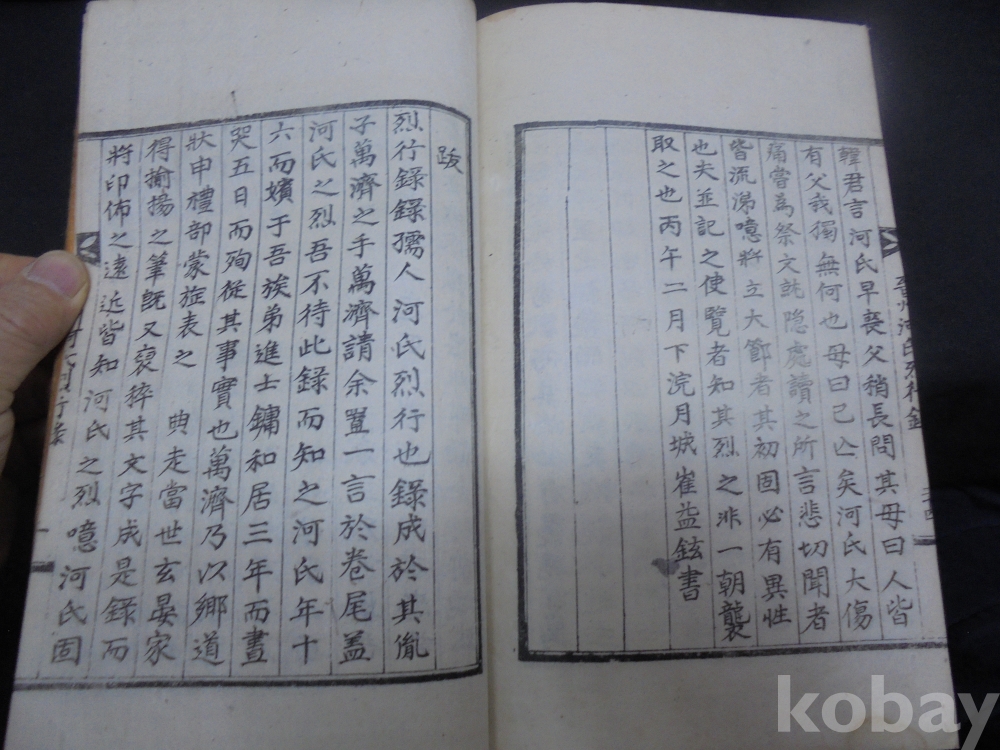 韓君言河氏早喪父稍長問其母曰人皆
有父我獨無何也母曰已亡矣河氏大傷
痛嘗為祭文說隐處讀之所言悲切聞者
皆流涕噫將立大節者其初固必有異性
也夫並記之使覽者知其烈之非一朝襲
取之也丙午二月下浣月城崔益鉉書
州河氏烈行錄
跋
烈行錄錄孺人河氏烈行也錄成於其胤
子萬濟之手萬濟請余置一言於卷尾盖
河氏之烈吾不待此錄而知之河氏年十
六而嬪于吾族弟進士鏞和居三年而晝
哭五日而殉從其事實也萬濟乃以鄉道
狀申禮部蒙旌表之 典走當世玄晏家
得揄揚之筆旣又裒稡其文字成是錄而
將印佈之遠近皆知河氏之烈噫河氏固
行錄
一
kobay